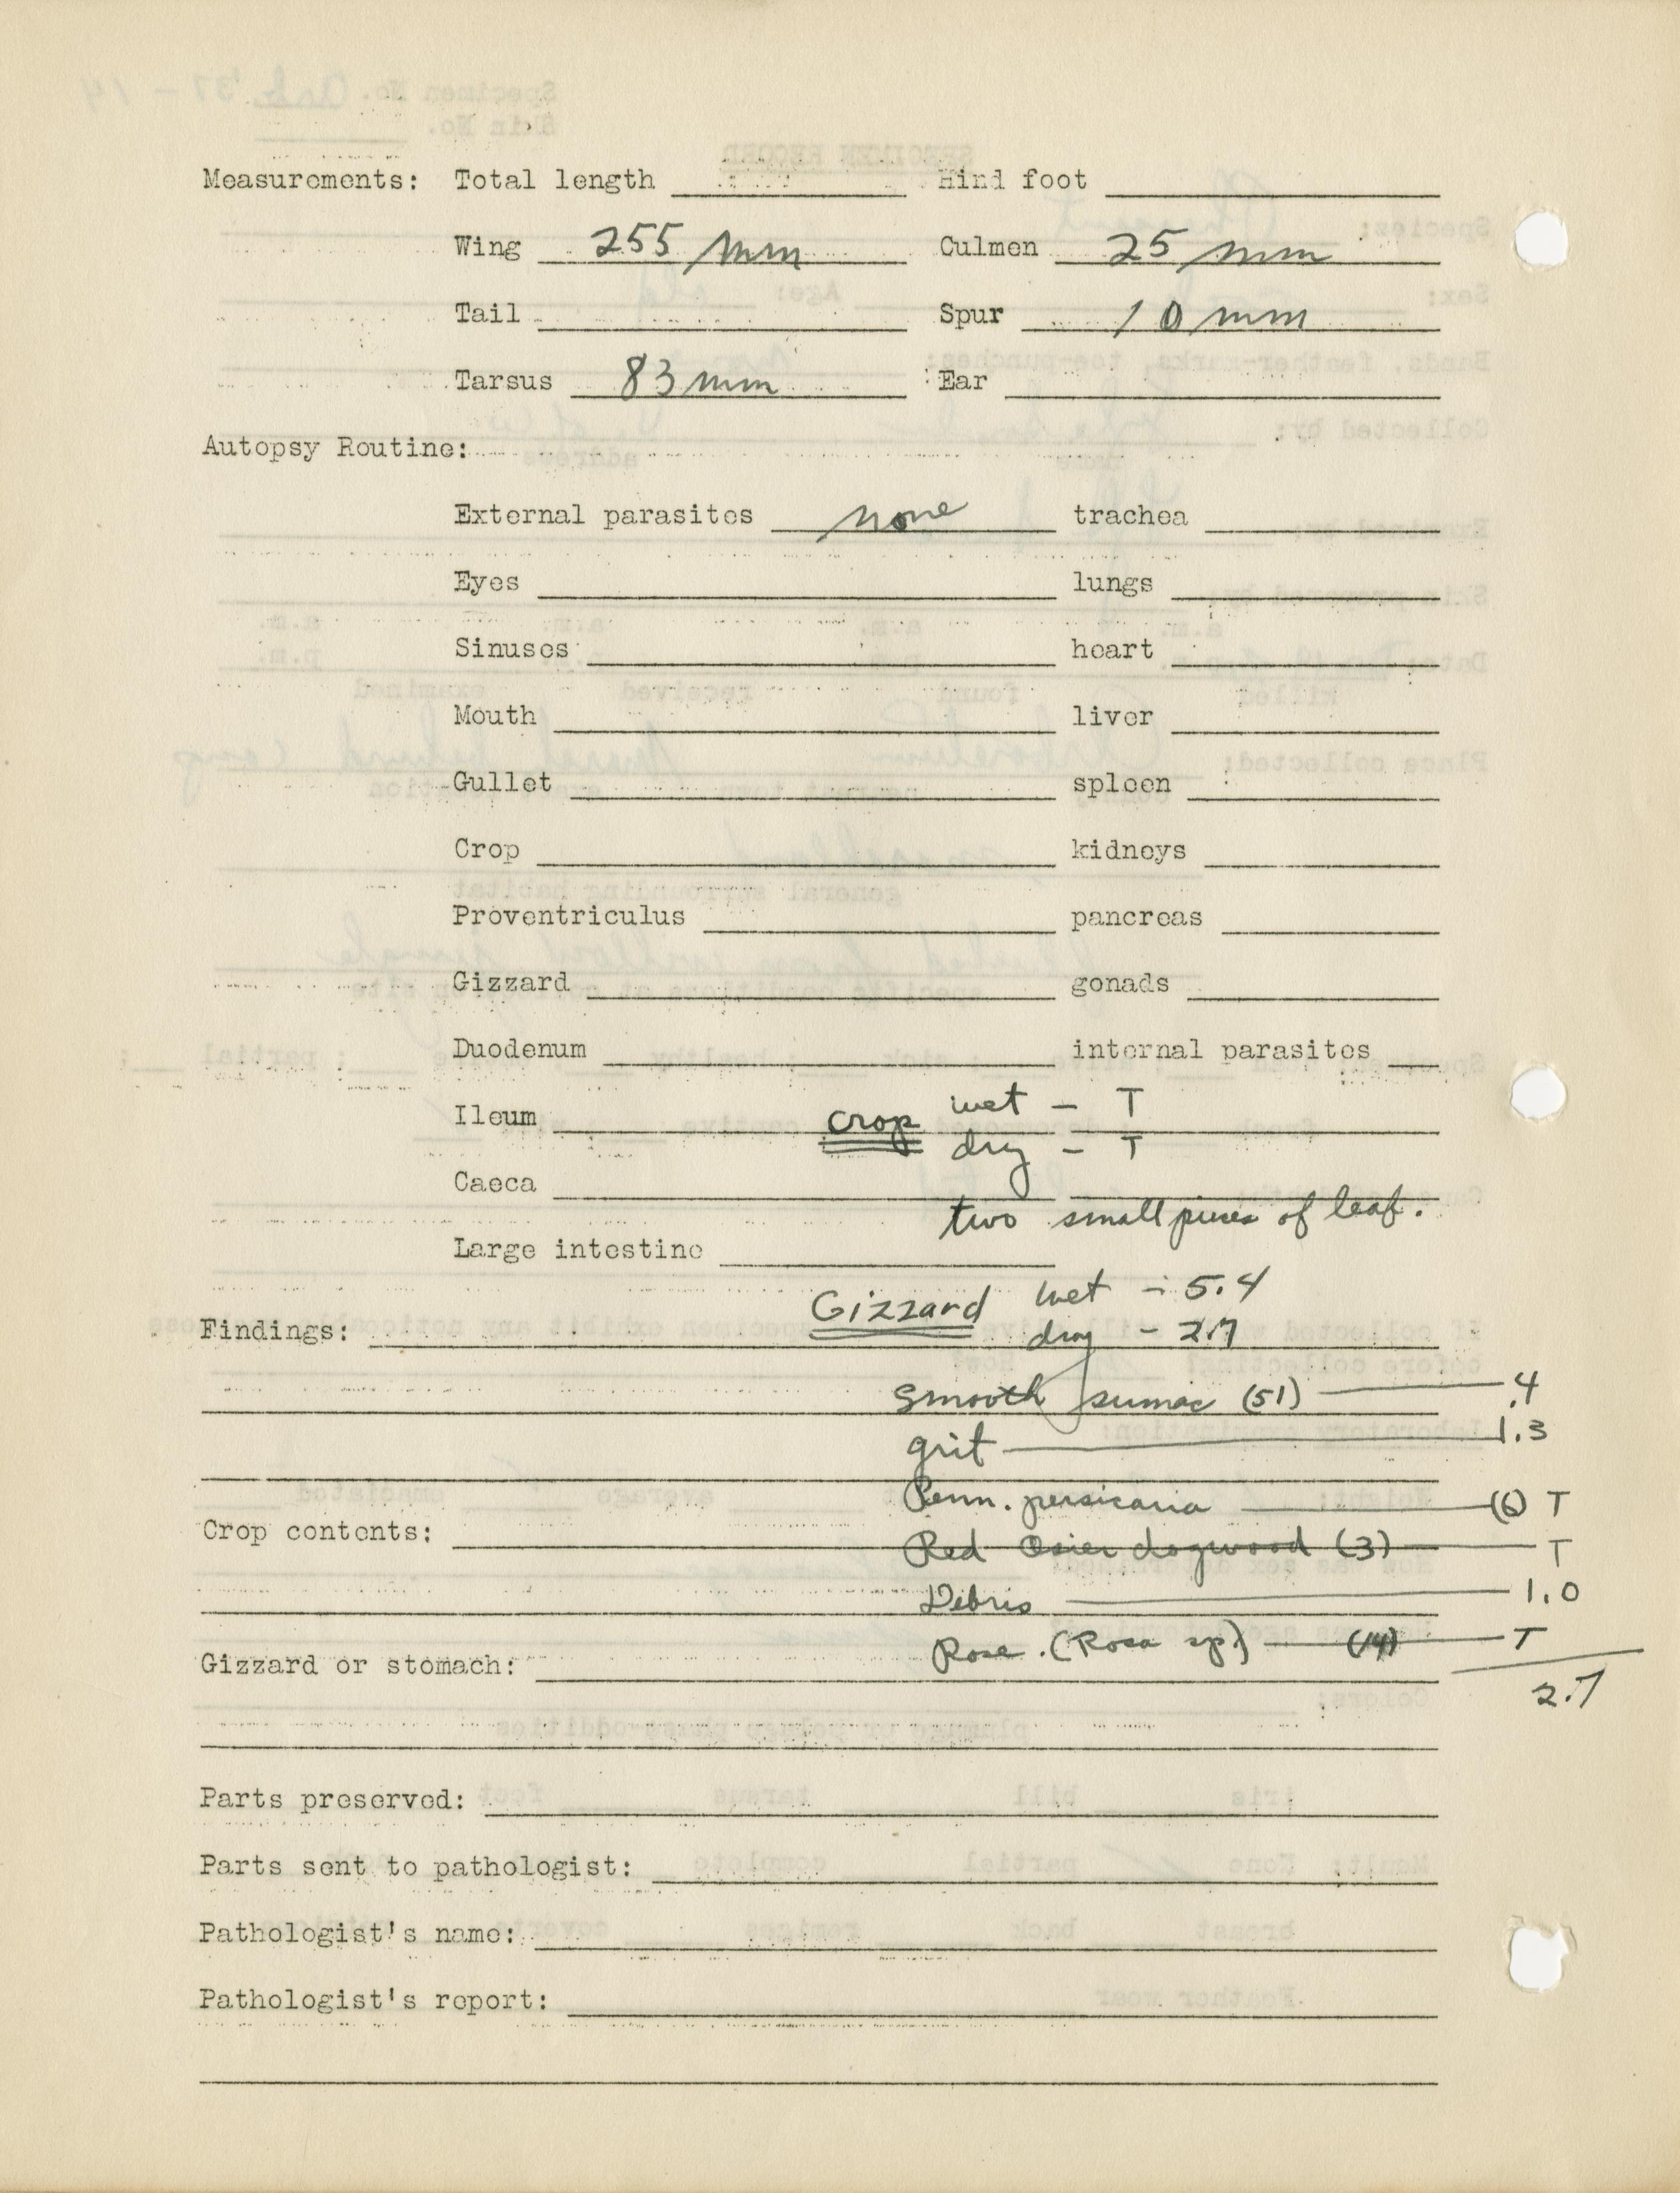 Measurements: Total length Hind foot
Wing 255 mm Culmen 25 mm
Tail Spur 10 mm
Tarsus 83 mm Ear
Autopsy Routine:
External parasites none trachea
Eyes lungs
Sinuses heart
Mouth liver
Gullet spleen
Crop kidneys
Proventriculus pancreas
Gizzard gonads
Duodenum internal parasites
Ileum
crop wet - T
dry - T
Caeca
two small pieces of leaf.
Large intestine
Gizzard wet - 5.4
Findings: dry - 2.7
Smooth sumac (51) .4
grit 1.3
Penn. persicaria (6) T
Crop contents:
Red Osier dogwood (3) T
Debris 1.0
Rose. (Rosa sp.) (14) T
Gizzard or stomach:
2.7
Parts preserved:
Parts sent to pathologist:
Pathologist's name:
Pathologist's report: